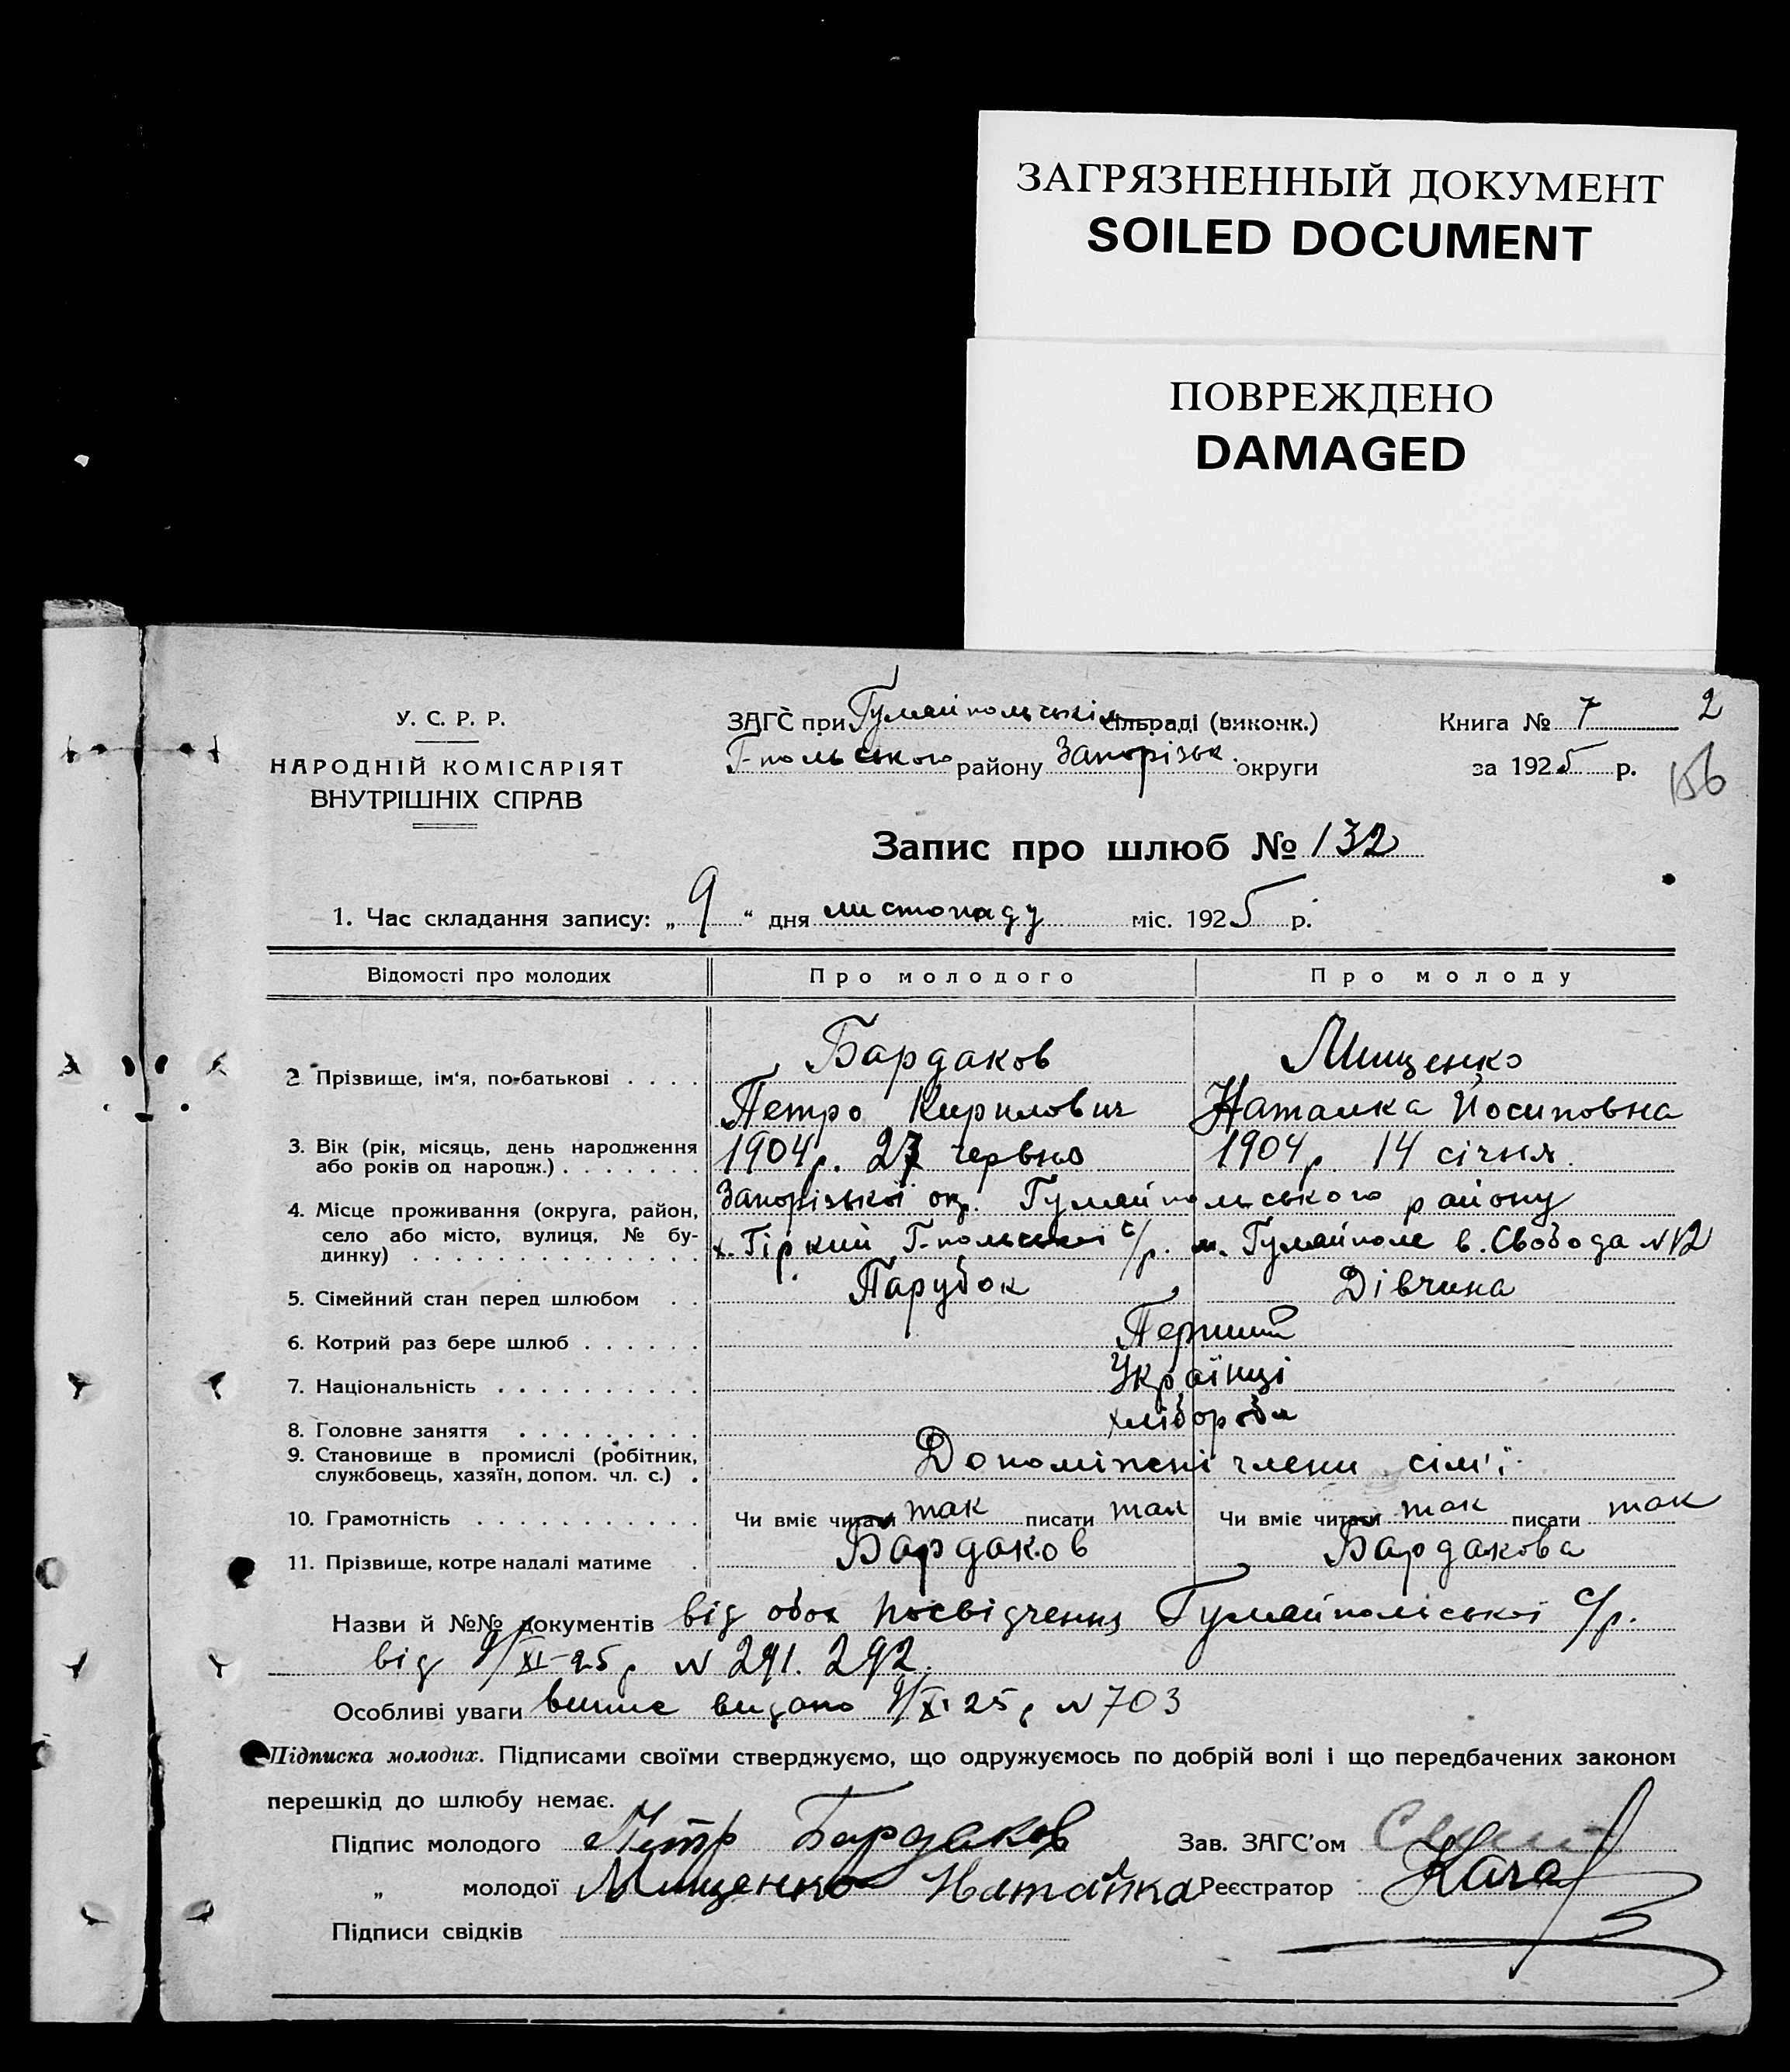 ЗАГРЯЗНЕННЫЙ ДОКУМЕНТ
SOILED DOCUMENT
ПОВРЕЖДЕНО
DAMAGED
У. С. Р. Р.
НАРОДНІЙ КОМІСАРІЯТ
ВНУТРІШНІХ СПРАВ
ЗАГС при Гуляйпольськім сільраді (виконк.)
Г-польського району Запорізьк. округи
Книга № 7 2
за 1925 р. 156
Запис про шлюб № 132
1. Час складання запису: „ 9 “ дня листопаду міс. 1925 р.
Відомості про молодих Про молодого Про молоду
Бардаков Мищенко
2 Прізвище, ім‘я, по-батькові . . . .
Петро Кирилович Наталка Йосиповна
3. Вік (рік, місяць, день народження 1904 р. 27 червня 1904 р 14 січня.
або років од народж.) . . . . . . .
4. Місце проживання (округа, район, Запорізької окр. Гуляйпольського району
село або місто, вулиця, № бу- х. Гіркий Г-польської с/р. м. Гуляйполе в. Свобода N 12
динку) . . . . . . . . . . . . . .
5. Сімейний стан перед шлюбом . . Парубок Дівчина
6. Котрий раз бере шлюб . . . . . . Перший
7. Національність . . . . . . . . . . Українці
8. Головне заняття . . . . . . . . . хлібороби
9. Становище в промислі (робітник, Допоміжні члени сім'ї
службовець, хазяїн, допом. чл. с.) .
10. Грамотність . . . . . . . . . . . Чи вміє читати так писати так Чи вміє читати так писати так
11. Прізвище, котре надалі матиме . Бардаков Бардакова
Назви й №№ документів від обох посвідчення Гуляйпольської с/р.
від 9/XI-25 р N 291. 292.
Особливі уваги випис видано 9/XI 25 р N 703
Підписка молодих. Підписами своїми стверджуємо, що одружуємось по добрій волі і що передбачених законом
перешкід до шлюбу немає.
Підпис молодого Петр Бардаков Зав. ЗАГС’ом
„ молодої Мищенко Наталка Реєстратор
Підписи свідків